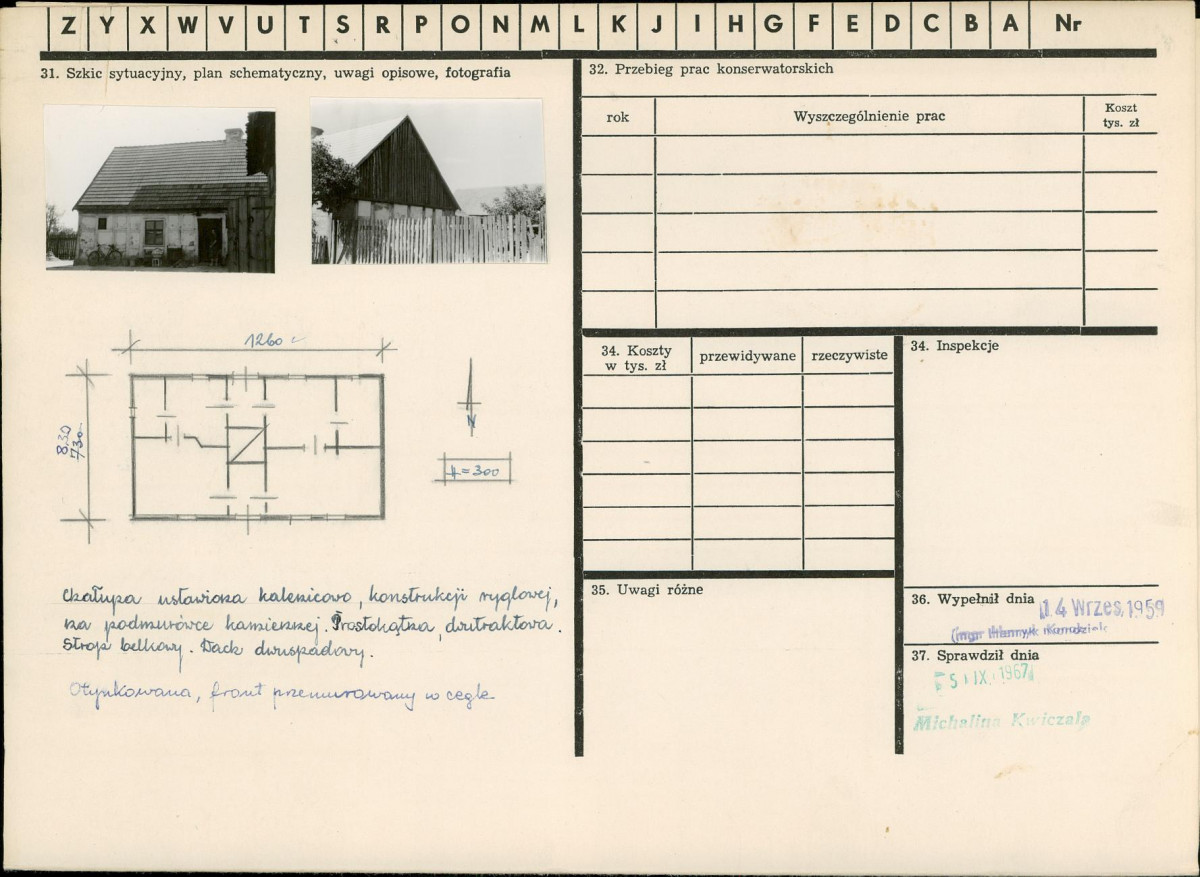 Z Y X W V U T S R P O N M L K J I H G F E D C B A Nr
31. Szkic sytuacyjny, plan schematyczny, uwagi opisowe, fotografia
1260
8.30
730
N
H=300
Chałupa ustawiona kalenicowo, konstrukcji ryglowej,
na podmurówce kamiennej. Prostokątna, dwutraktowa.
Strop belkowy. Dach dwuspadowy.
Otynkowana, front przemurowany w cegle
32. Przebieg prac konserwatorskich
rok Wyszczególnienie prac Koszt
tys. zł
34. Koszty
w tys. zł
przewidywane rzeczywiste
34. Inspekcje
35. Uwagi różne
36. Wypełnił dnia 14 Wrzes. 1959
mgr Henryk
37. Sprawdził dnia
5 IX. 1967
Michalina Kwiczala